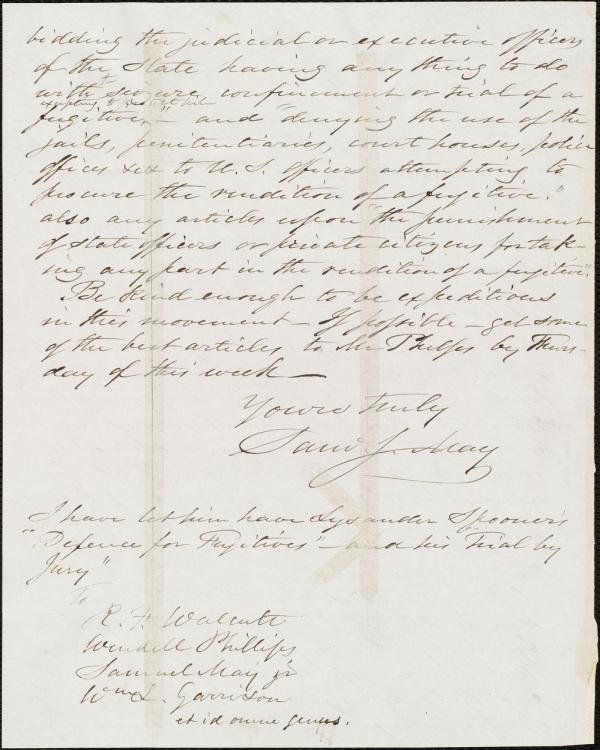 bidding the judicial or executive officers
of the State having any thing to do
with the seizure, confinement or trial of a
excepting to protect him
fugitive,—" and "denying the use of the
jails, penitentiaries, court houses, police
offices &c to U. S. officers attempting to
procure the rendition of a fugitive."
also any articles upon "the punishment
of State officers or private citizens for tak-
ing any part in the rendition of a fugitive".
Be kind enough to be expeditious
in this movement — If possible — get some
of the best articles to Mr Phelps by Thurs-
day of this week —
Yours truly
Saml J. May
I have let him have Lysander Spooner's
"Defence for Fugitives" — and his Trial by
Jury"
To
R. F. Walcutt
Wendell Phillips
Samuel May jr
Wm L. Garrison
et id omne genus.